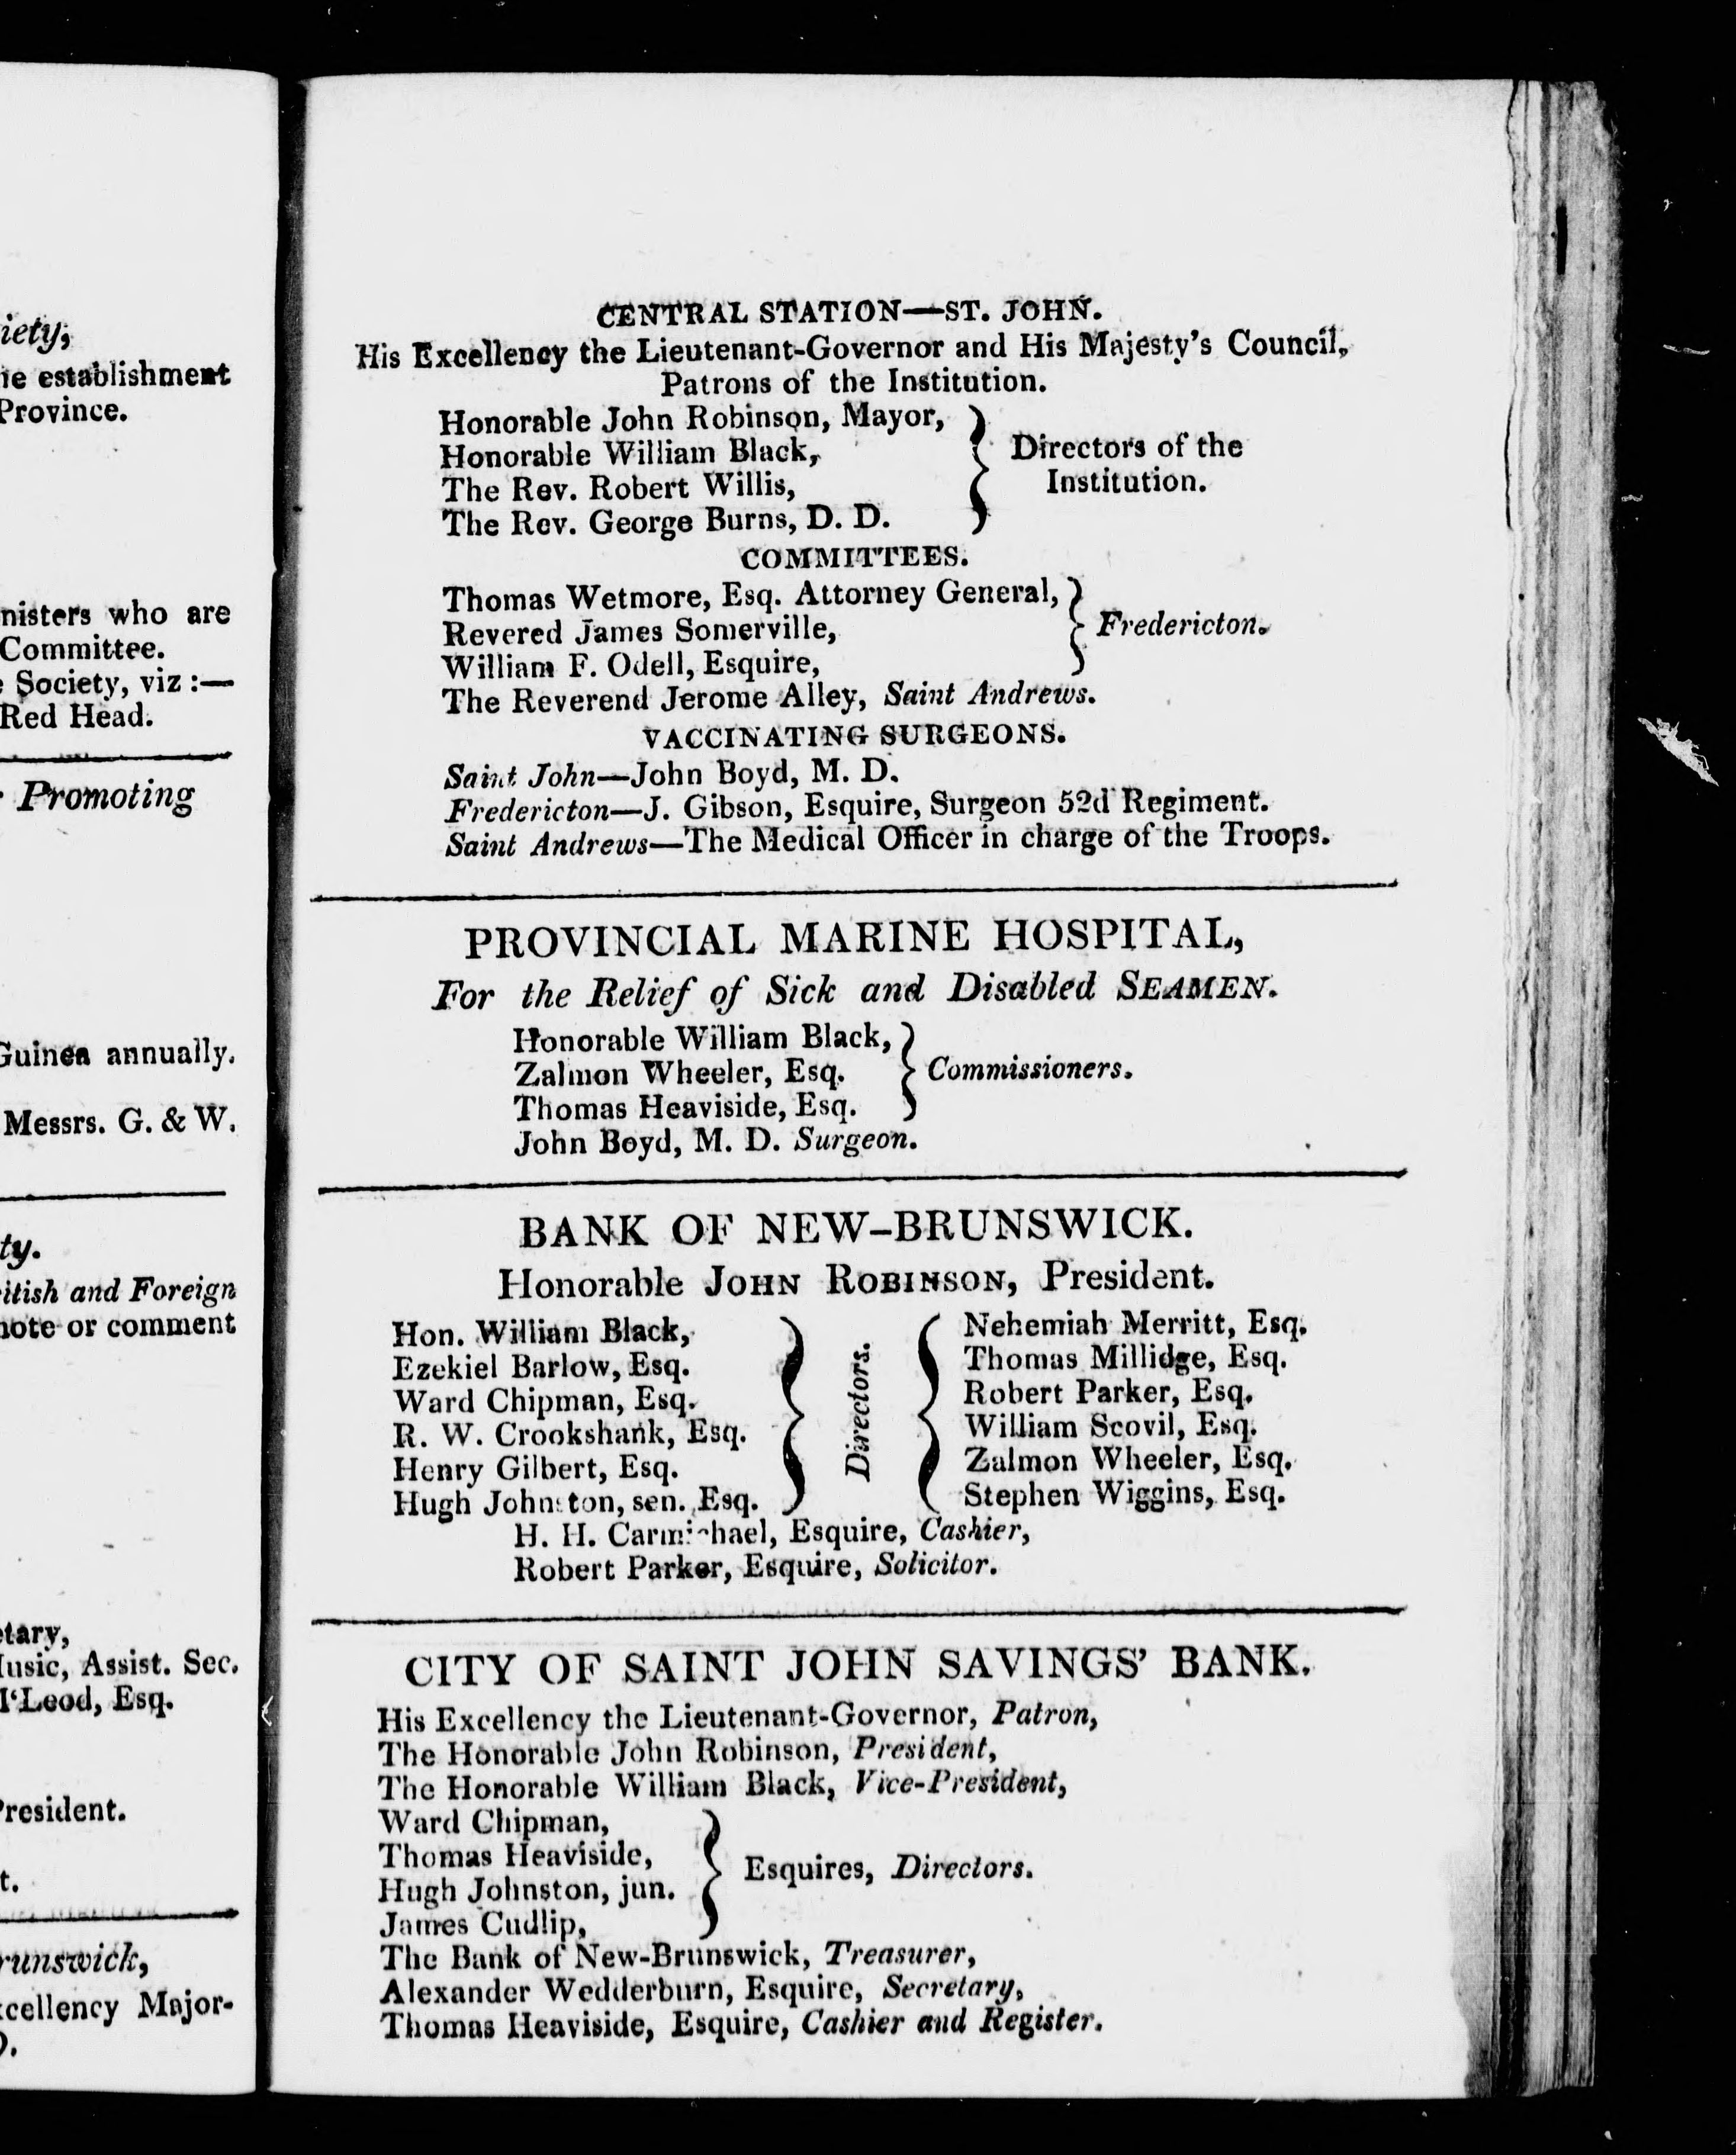 iety,
establishment
Province.
nisters who are
Committee.
Society, viz :—
Red Head.
Promoting
Guinea annually.
Messrs. G. & W.
ty.
and Foreign
or comment
Assist. Sec.
Esq.
President.
t.
cellency Major-
CENTRAL STATION—ST. JOHN.
His Excellency the Lieutenant-Governor and His Majesty's Council,
Patrons of the Institution.
Honorable John Robinson, Mayor,
Honorable William Black,
The Rev. Robert Willis,
The Rev. George Burns, D. D.
Directors of the
Institution.
COMMITTEES.
Thomas Wetmore, Esq. Attorney General,
Revered James Somerville,
William F. Odell, Esquire,
Fredericton.
The Reverend Jerome Alley, Saint Andrews.
VACCINATING SURGEONS.
Saint John—John Boyd, M. D.
Fredericton—J. Gibson, Esquire, Surgeon 52d Regiment.
Saint Andrews—The Medical Officer in charge of the Troops.
PROVINCIAL MARINE HOSPITAL,
For the Relief of Sick and Disabled SEAMEN.
Honorable William Black,
Zalmon Wheeler, Esq.
Thomas Heaviside, Esq.
Commissioners.
John Boyd, M. D. Surgeon.
BANK OF NEW-BRUNSWICK.
Honorable JOHN ROBINSON, President.
Hon. William Black,
Ezekiel Barlow, Esq.
Ward Chipman, Esq.
R. W. Crookshank, Esq.
Henry Gilbert, Esq.
Hugh Johnston, sen. Esq.
Directors.
Nehemiah Merritt, Esq.
Thomas Millidge, Esq.
Robert Parker, Esq.
William Scovil, Esq.
Zalmon Wheeler, Esq.
Stephen Wiggins, Esq.
H. H. Carmichael, Esquire, Cashier,
Robert Parker, Esquire, Solicitor.
CITY OF SAINT JOHN SAVINGS' BANK.
His Excellency the Lieutenant-Governor, Patron,
The Honorable John Robinson, President,
The Honorable William Black, Vice-President,
Ward Chipman,
Thomas Heaviside,
Hugh Johnston, jun.
James Cudlip,
Esquires, Directors.
The Bank of New-Brunswick, Treasurer,
Alexander Wedderburn, Esquire, Secretary,
Thomas Heaviside, Esquire, Cashier and Register.